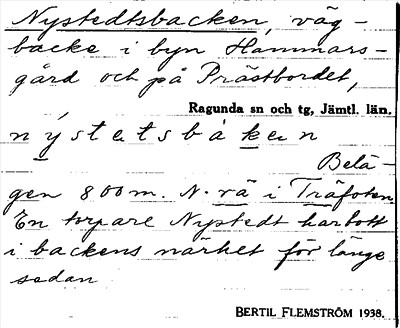 Nystedtsbacken, väg-
backe i byn Hammars-
gård och på Prästbordet,
Ragunda sn och tg, Jämtl. län.
nýstetsbàken
Belä-
gen 800 m. N. rä i Träfoten
En torpare Nystedt har bott
i backens närhet för länge
sedan
BERTIL FLEMSTRÖM 1938.